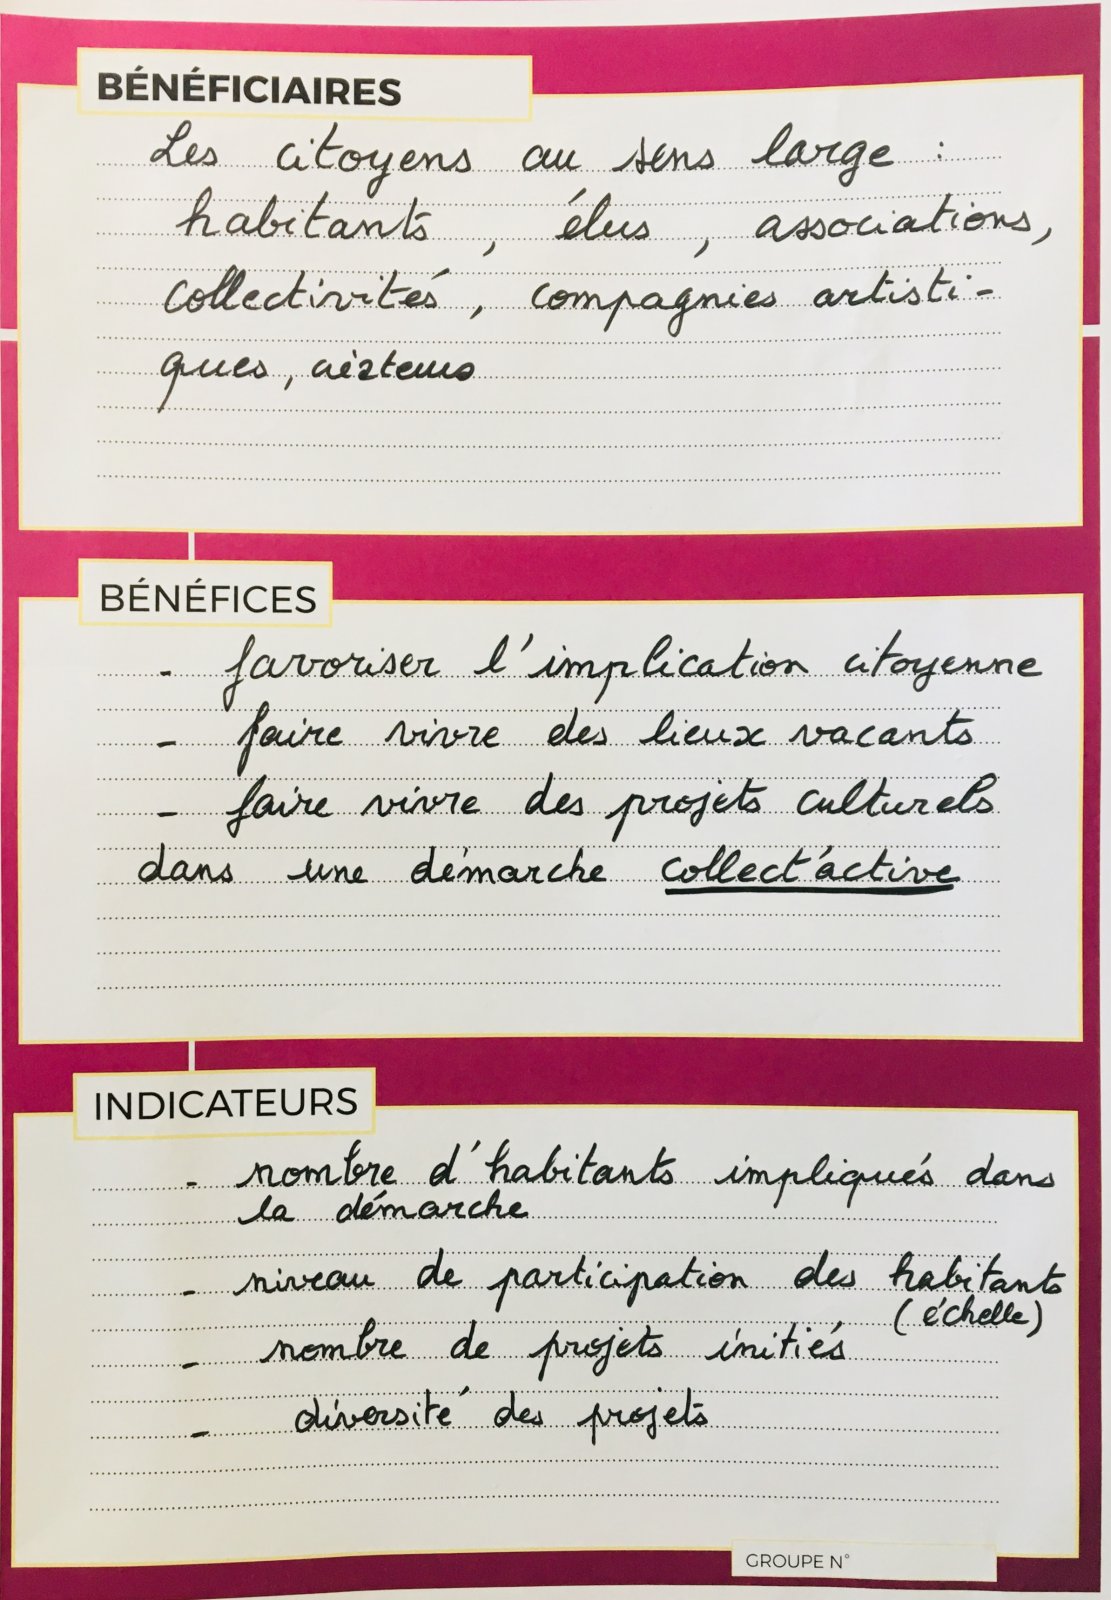 BÉNÉFICIAIRES
Les citoyens au sens large :
habitants, élus, associations,
collectivités, compagnies artisti-
ques,
BÉNÉFICES
- favoriser l'implication citoyenne
- faire vivre des lieux vacants
- faire vivre des projets culturels
dans une démarche collect'active
INDICATEURS
- nombre d'habitants impliqués dans
la démarche
- niveau de participation des habitants
(échelle)
- nombre de projets initiés
- diversité des projets
GROUPE N°